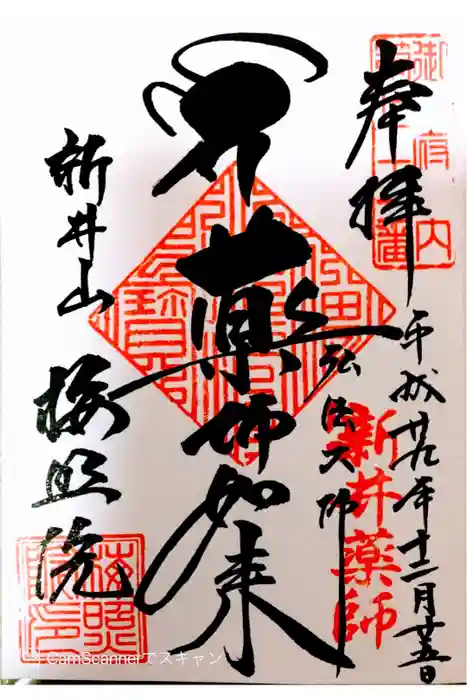 奉拝
平成廿九年十二月廿五日
薬師如来
弘法大師
新井薬師
新井山
梅照院
CamScannerでスキャン